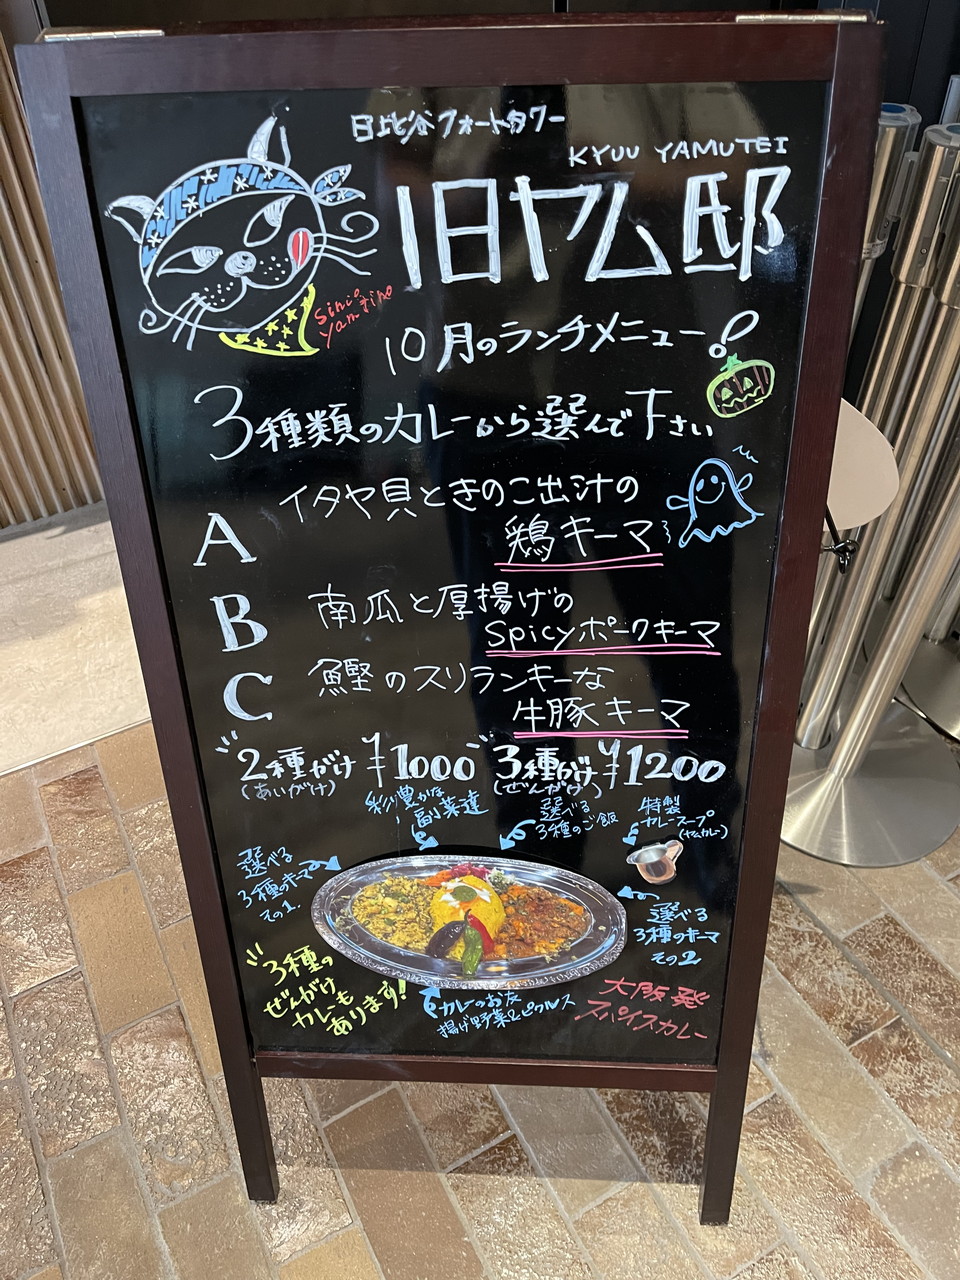 日比谷フォートタワー
KYUU YAMUTEI
旧ヤム邸
10月のランチメニュー!
3種類のカレーから選んで下さい
A
イタヤ貝ときのこ出汁の
鶏キーマ
B
南瓜と厚揚げの
Spicyポークキーマ
C
鰹のスリランキーな
牛豚キーマ
2種がけ ¥1000
(あいがけ)
3種がけ ¥1200
(ぜんがけ)
彩り豊かな
副菜達
選べる
3種のご飯
特製
カレースープ
(ヤムカレー)
選べる
3種のキーマ
その1.
選べる
3種のキーマ
その2
3種の
ぜんがけ
カレーも
あります!
カレーのお友
揚げ野菜&ピクルス
大阪発
スパイスカレー